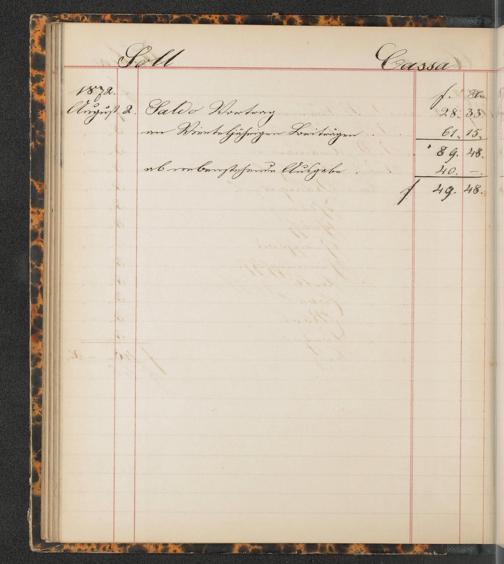 Soll Cassa
1872. f. Xr.
August 2. Saldo Vortrag 28. 33
an Vierteljährigen Beiträgen 61. 15.
89. 48.
ab nebenstehende Ausgabe 40. –
f 49. 48.